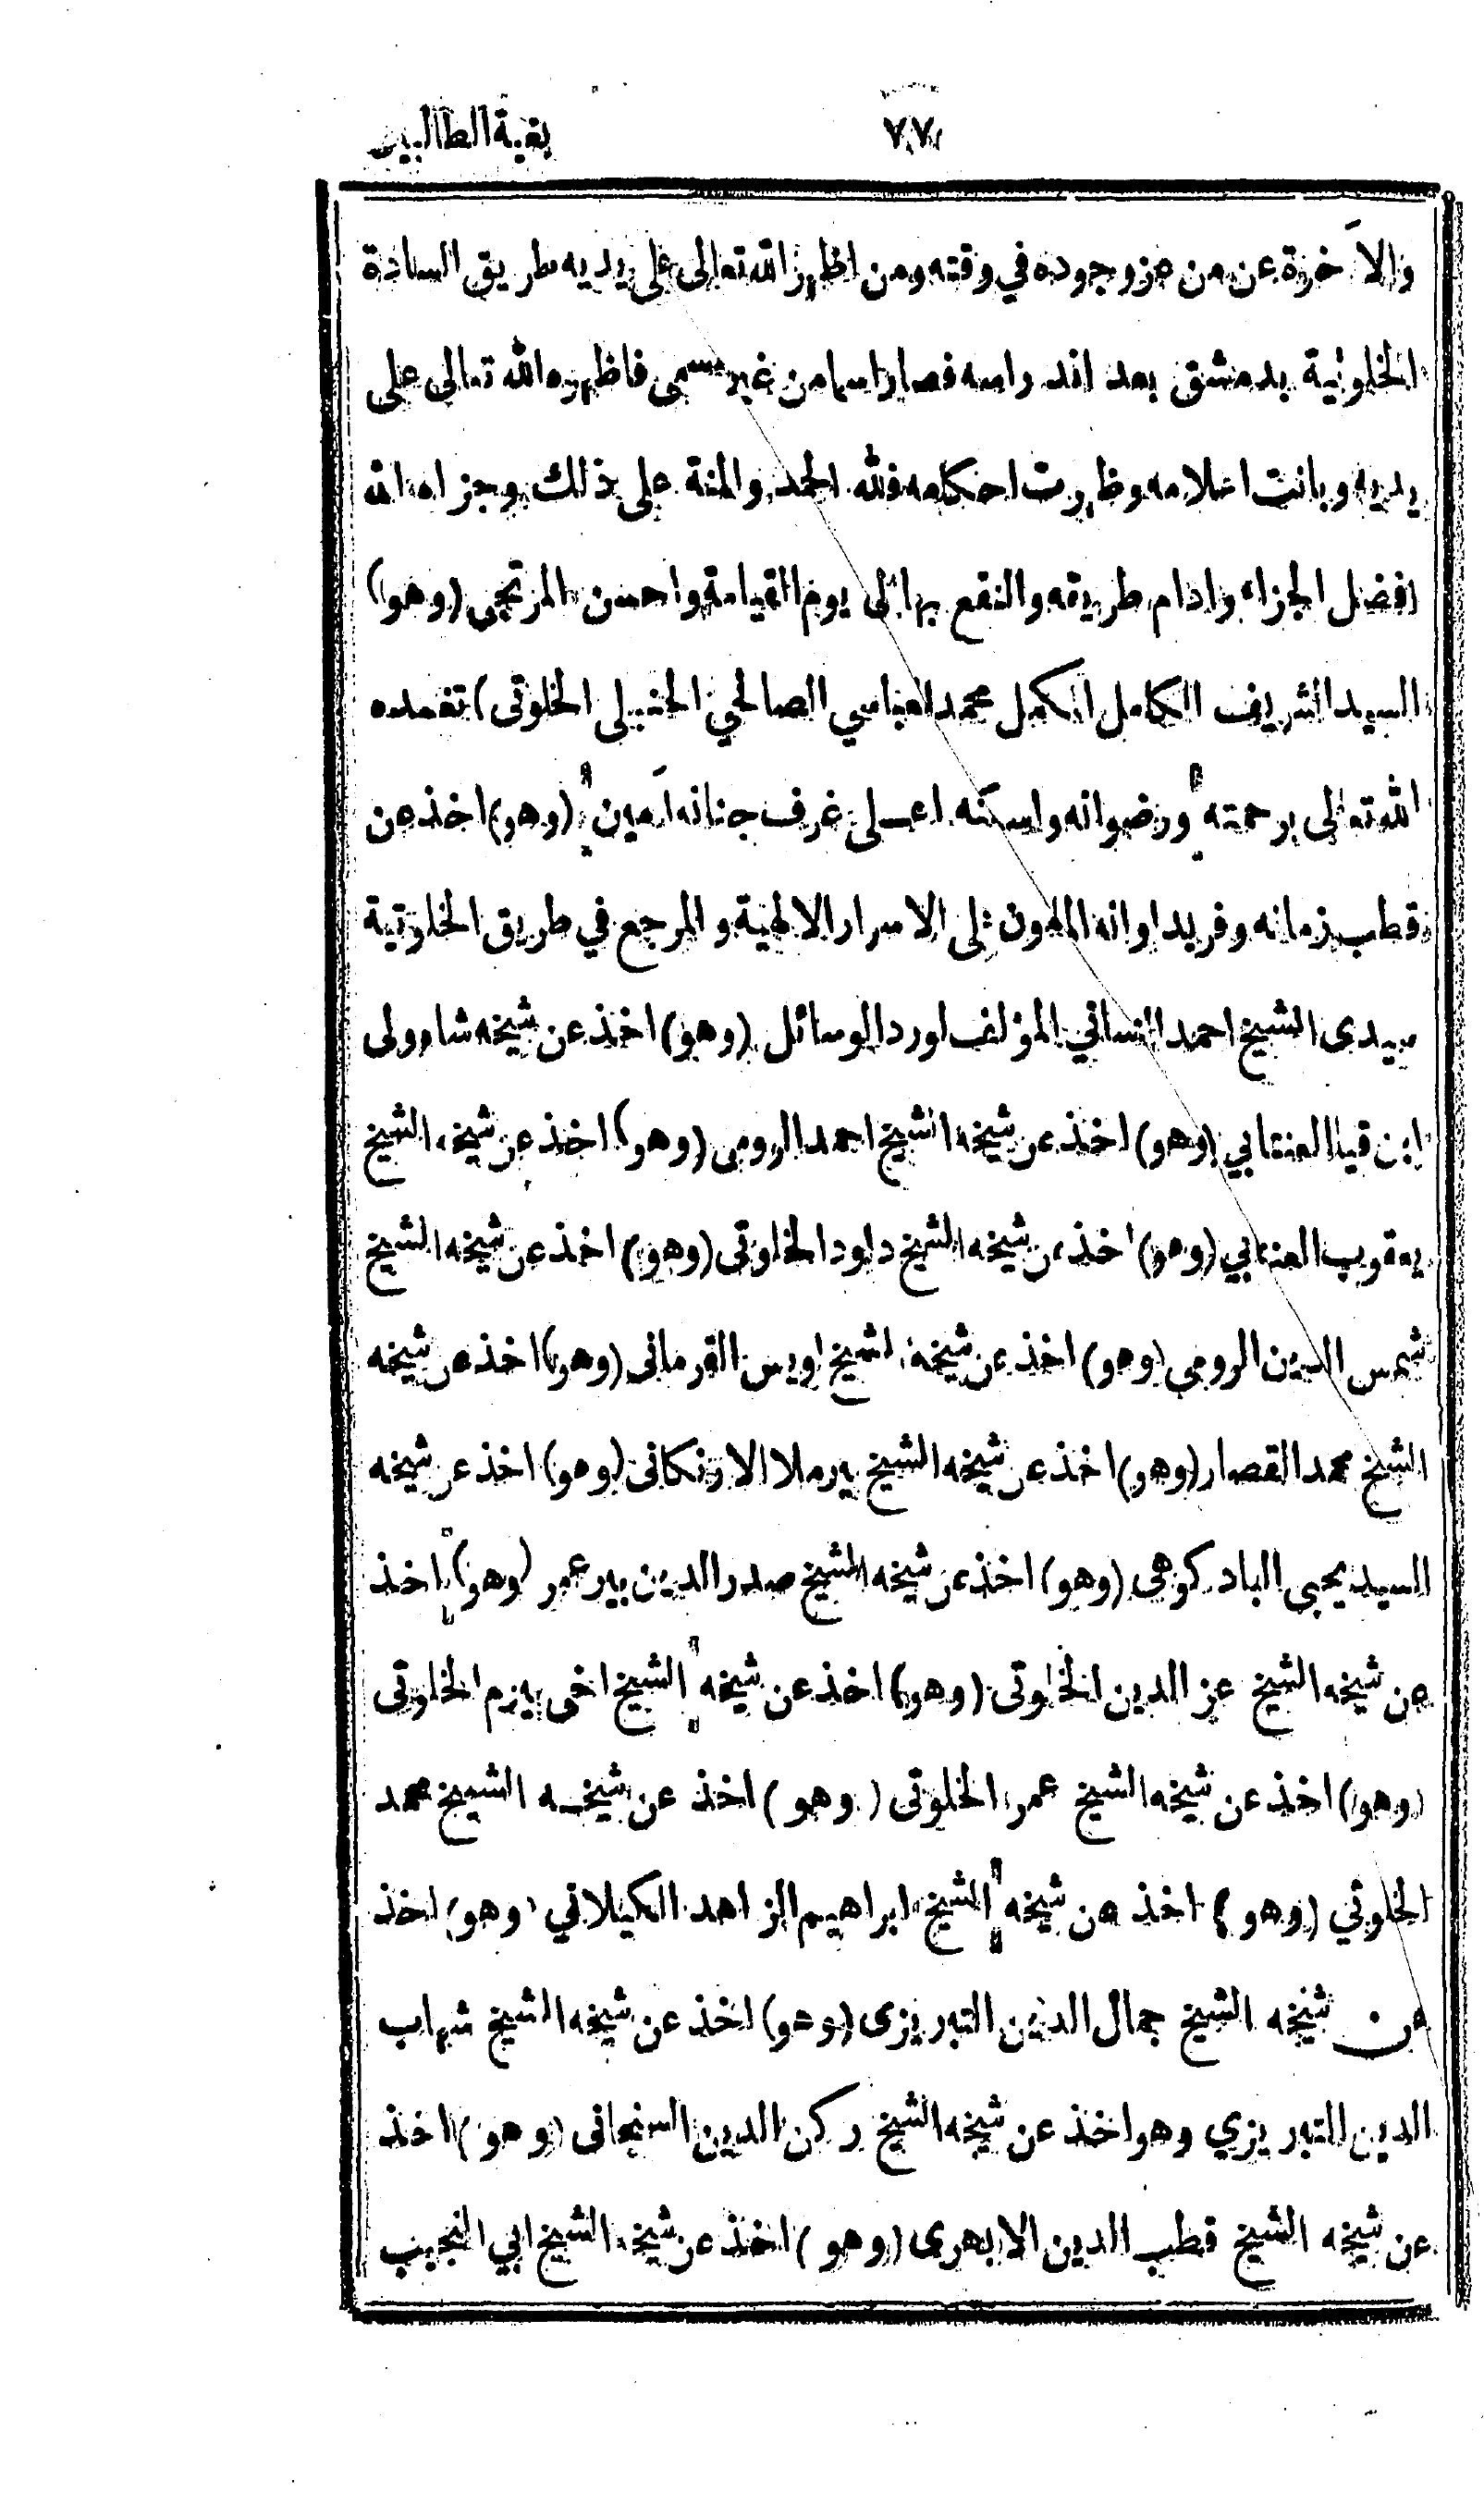 ٧٧ بغية الطالبين
والآخرة عن من عز وجوده في وقته ومن اظهر الله تعالى على يديه طريق السادة
الخلوتية بدمشق بعد اندراسه فصار اسما من غير مسمى فاظهره الله تعالى على
يديه وبانت اعلامه وظهرت احكامه فلله الحمد والمنة على ذلك وجزاه الله
افضل الجزاء وادام طريقه والنفع بها الى يوم القيامة واحسن المرتجى (وهو)
السيد الشريف الكامل المكمل محمد العباسي الصالحي الحنبلى الخلوتى) تغمده
الله تعالى برحمته ورضوانه واسكنه اعلى غرف جنانه آمين (وهو) اخذ عن
قطب زمانه وفريد اوانه المأمون على الاسرار الالهية والمرجع في طريق الخلوتية
سيدى الشيخ احمد العسالي المؤلف لورد الوسائل (وهو) اخذ عن شيخه شاه ولى
ابن قيا العنتابي (وهو) اخذ عن شيخه الشيخ احمد الرومى (وهو) اخذ عن شيخه الشيخ
يعقوب العنتابي (وهو) اخذ عن شيخه الشيخ داود الخلوتى (وهو) اخذ عن شيخه الشيخ
شمس الدين الرومي (وهو) اخذ عن شيخه الشيخ اويس القرمانى (وهو) اخذ عن شيخه
الشيخ محمد القصار (وهو) اخذ عن شيخه الشيخ پيرملا الارزنكانى (وهو) اخذ عن شيخه
السيد يحيى الباد كوهى (وهو) اخذ عن شيخه الشيخ صدر الدين بير عمر (وهو) اخذ
عن شيخه الشيخ عز الدين الخلوتى (وهو) اخذ عن شيخه الشيخ اخى بيرم الخلوتى
(وهو) اخذ عن شيخه الشيخ عمر الخلوتى (وهو) اخذ عن شيخه الشيخ محمد
الخلوتي (وهو) اخذ عن شيخه الشيخ ابراهيم الزاهد الكيلاني (وهو) اخذ
عن شيخه الشيخ جمال الدين التبريزى (وهو) اخذ عن شيخه الشيخ شهاب
الدين التبريزي وهو اخذ عن شيخه الشيخ ركن الدين السنجانى (وهو) اخذ
عن شيخه الشيخ قطب الدين الابهرى (وهو) اخذ عن شيخه الشيخ ابي النجيب